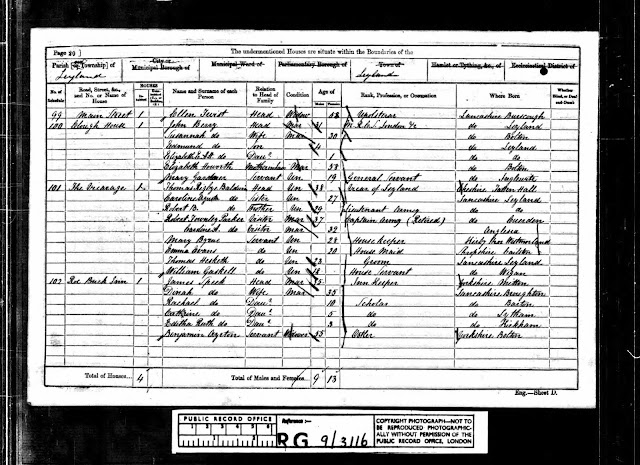 Page 20 ] The undermentioned Houses are situate within the Boundaries of the
Parish [or Township] of City or Municipal Borough of Municipal Ward of Parliamentary Borough of Town of Hamlet or Tything, &c., of Ecclesiastical District of
Leyland Leyland
No. of Schedule Road, Street, &c., and No. or Name of House HOUSES Name and Surname of each Person Relation to Head of Family Condition Age of Males Females Rank, Profession, or Occupation Where Born Whether Blind, or Deaf-and-Dumb
99 Main Street 1 Ellen Head Widow Lancashire
100 House 1 John Berry Head Mar 31 de Leyland
Susannah do Wife Mar 30 do Bolton
Edmund do Son 4 do Leyland
Elizabeth do Daur 1 do do
Elizabeth Howorth Mar do Bolton
Mary Gardner Servant Un 19 General Servant do
101 The Vicarage 1 Thomas Rigby Baldwin Head Un Vicar of Leyland Cheshire Hall
Caroline do Sister Un 27 Lancashire Leyland
Robert B. do Brother Un Lieutenant Army do do
Robert Townley Parker Visitor Mar 37 Captain Army (Retired) do Cuerden
do Visitor Mar 32 Anglesea
Mary Byrne Servant Un 28 House Keeper Westmorland
Emma Evans do Un 20 House Maid
Thomas Hesketh do Un 23 Groom Lancashire Leyland
William Gaskell do Un 18 House Servant do Wigan
102 Roe Buck Inn 1 James Speek Head Mar Inn Keeper Yorkshire Mitton
Dinah do Wife Mar 35 Lancashire Broughton
Rachael do Daur 10 Scholar do Barton
Catherine do Daur 5 do do Lytham
Editha Ruth do Daur 3 do do Kirkham
Benjamin Servant Ostler Yorkshire Bolton
Total of Houses... 4 Total of Males and Females.. 9 13
Eng.—Sheet D.
PUBLIC RECORD OFFICE
1 2 3 4 5 6
Reference :-
RG 9/3116
COPYRIGHT PHOTOGRAPH—NOT TO BE REPRODUCED PHOTOGRAPHICALLY WITHOUT PERMISSION OF THE PUBLIC RECORD OFFICE, LONDON